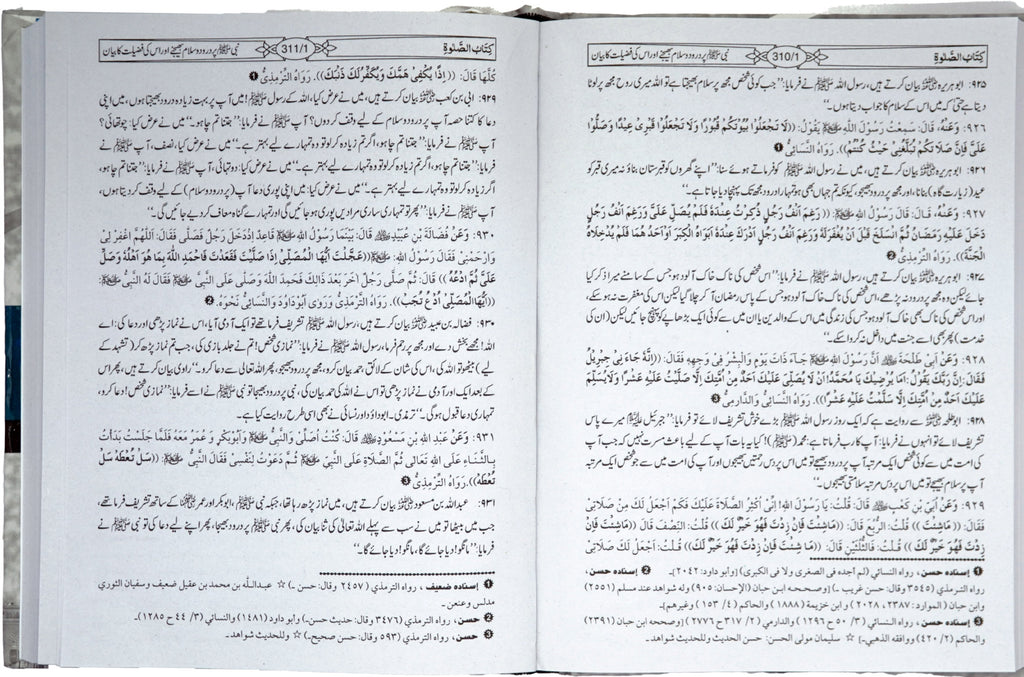 كِتَابُ الصَّلٰوةِ 310/1 نبی ﷺ پر درود و سلام بھیجنے اور اس کی فضیلت کا بیان
۹۲۵: ابو ہریرہ رضی اللہ عنہ بیان کرتے ہیں، رسول اللہ ﷺ نے فرمایا: ’’جب کوئی شخص مجھ پر سلام بھیجتا ہے تو اللہ میری روح مجھ پر لوٹا
دیتا ہے حتیٰ کہ میں اس کے سلام کا جواب دیتا ہوں۔‘‘
۹۲۶: وَعَنْهُ، قَالَ: سَمِعْتُ رَسُوْلَ اللّٰهِ ﷺ يَقُوْلُ: ((لَا تَجْعَلُوْا بُيُوْتَكُمْ قُبُوْرًا وَلَا تَجْعَلُوْا قَبْرِيْ عِيْدًا وَصَلُّوْا
عَلَيَّ فَإِنَّ صَلَاتَكُمْ تَبْلُغُنِيْ حَيْثُ كُنْتُمْ)). رَوَاهُ النَّسَائِيُّ ❶
۹۲۶: ابو ہریرہ رضی اللہ عنہ بیان کرتے ہیں، میں نے رسول اللہ ﷺ کو فرماتے ہوئے سنا: ’’اپنے گھروں کو قبرستان بناؤ نہ میری قبر کو
عید (زیارت گاہ) بنانا، اور مجھ پر درود بھیجو، کیونکہ تم جہاں بھی ہو تمہارا درود مجھ تک پہنچا دیا جاتا ہے۔‘‘
۹۲۷: وَعَنْهُ، قَالَ: قَالَ رَسُوْلُ اللّٰهِ ﷺ: ((رَغِمَ أَنْفُ رَجُلٍ ذُكِرْتُ عِنْدَهُ فَلَمْ يُصَلِّ عَلَيَّ وَرَغِمَ أَنْفُ رَجُلٍ
دَخَلَ عَلَيْهِ رَمَضَانُ ثُمَّ انْسَلَخَ قَبْلَ أَنْ يُغْفَرَ لَهُ وَرَغِمَ أَنْفُ رَجُلٍ أَدْرَكَ عِنْدَهُ أَبَوَاهُ الْكِبَرَ أَوْ أَحَدُ هُمَا فَلَمْ يُدْخِلَاهُ
الْجَنَّةَ)). رَوَاهُ التِّرْمِذِيُّ ❷
۹۲۷: ابو ہریرہ رضی اللہ عنہ بیان کرتے ہیں، رسول اللہ ﷺ نے فرمایا: ’’اس شخص کی ناک خاک آلود ہو جس کے سامنے میرا ذکر کیا
جائے لیکن وہ مجھ پر درود نہ پڑھے، اس شخص کی ناک خاک آلود ہو جس کے پاس رمضان آ کر چلا گیا لیکن اس کی مغفرت نہ ہو سکے،
اور اس شخص کی ناک بھی خاک آلود ہو جس کی زندگی میں اس کے والدین یا ان میں سے کوئی ایک بڑھاپے کو پہنچ جائیں لیکن (ان کی
خدمت) پھر بھی اسے جنت میں داخل نہ کروا سکے۔‘‘
۹۲۸: وَعَنْ أَبِيْ طَلْحَةَ رضی اللہ عنہ أَنَّ رَسُوْلَ اللّٰهِ ﷺ جَاءَ ذَاتَ يَوْمٍ وَالْبِشْرُ فِيْ وَجْهِهِ فَقَالَ: ((إِنَّهُ جَاءَ نِيْ جِبْرِيْلُ
فَقَالَ: إِنَّ رَبَّكَ يَقُوْلُ: أَمَا يُرْضِيْكَ يَا مُحَمَّدُ! أَنْ لَا يُصَلِّيَ عَلَيْكَ أَحَدٌ مِنْ أُمَّتِكَ إِلَّا صَلَّيْتُ عَلَيْهِ عَشْرًا وَلَا يُسَلِّمَ
عَلَيْكَ أَحَدٌ مِنْ أُمَّتِكَ إِلَّا سَلَّمْتُ عَلَيْهِ عَشْرًا)). رَوَاهُ النَّسَائِيُّ وَالدَّارِمِيُّ ❸
۹۲۸: ابوطلحہ رضی اللہ عنہ سے روایت ہے کہ ایک روز رسول اللہ ﷺ بڑے خوش تشریف لائے تو فرمایا: ’’جبرئیل میرے پاس
تشریف لائے تو انہوں نے فرمایا: آپ کا رب فرماتا ہے: محمد (ﷺ)! کیا یہ بات آپ کے لیے باعث مسرت نہیں کہ جب آپ
کی امت میں سے کوئی شخص ایک مرتبہ آپ پر درود بھیجے تو میں اس پر دس رحمتیں بھیجوں اور آپ کی امت میں سے جو شخص ایک مرتبہ
آپ پر سلام بھیجے تو میں اس پر دس مرتبہ سلامتی بھیجوں۔‘‘
۹۲۹: وَعَنْ أُبَيِّ بْنِ كَعْبٍ رضی اللہ عنہ قَالَ: قُلْتُ: يَا رَسُوْلَ اللّٰهِ! إِنِّيْ أُكْثِرُ الصَّلَاةَ عَلَيْكَ فَكَمْ أَجْعَلُ لَكَ مِنْ صَلَاتِيْ
فَقَالَ: ((مَا شِئْتَ)) قُلْتُ: الرُّبُعَ قَالَ: ((مَا شِئْتَ فَإِنْ زِدْتَّ فَهُوَ خَيْرٌ لَّكَ)) قُلْتُ: النِّصْفَ قَالَ ((مَا شِئْتَ فَإِنْ
زِدْتَّ فَهُوَ خَيْرٌ لَّكَ)) قُلْتُ: فَالثُّلُثَيْنِ قَالَ: ((مَا شِئْتَ فَإِنْ زِدْتَّ فَهُوَ خَيْرٌ لَّكَ)) قُلْتُ: أَجْعَلُ لَكَ صَلَاتِيْ
❶ إسناده حسن، رواه النسائي (لم أجده في الصغرى ولا في الكبرى) [وأبو داود: ۲۰۴۲]۔ ❷ إسناده حسن،
رواه الترمذي (۳۵۴۵ وقال: حسن غريب۔) [وصححه ابن حبان (الإحسان: ۹۰۵) وله شواهد عند مسلم (۲۵۵۱)
وابن حبان (الموارد: ۲۳۸۷، ۲۰۲۸) وابن خزيمة (۱۸۸۸) والحاكم (۴/ ۱۵۳) وغيرهم]۔
❸ إسناده حسن، رواه النسائي (۳/ ۵۰ ح ۱۲۹۶) والدارمي (۲/ ۳۱۷ ح ۲۷۷۶) [وصححه ابن حبان (۲۳۹۱)
والحاكم (۲/ ۴۲۰) ووافقه الذهبي۔] ☆ سليمان مولى الحسن: حسن الحديث وللحديث شواهد۔
كِتَابُ الصَّلٰوةِ 311/1 نبی ﷺ پر درود و سلام بھیجنے اور اس کی فضیلت کا بیان
كُلَّهَا قَالَ: ((إِذًا يُكْفَى هَمَّكَ وَيُكَفَّرُ لَكَ ذَنْبُكَ)). رَوَاهُ التِّرْمِذِيُّ ❶
۹۲۹: ابی بن کعب رضی اللہ عنہ بیان کرتے ہیں، میں نے عرض کیا، اللہ کے رسول ﷺ! میں آپ پر بہت زیادہ درود بھیجتا ہوں، میں اپنی
دعا کا کتنا حصہ آپ پر درود و سلام کے لیے وقف کر دوں؟ آپ ﷺ نے فرمایا: ’’جتنا تم چاہو۔‘‘ میں نے عرض کیا: چوتھائی؟
آپ ﷺ نے فرمایا: ’’جتنا تم چاہو، اگر تم زیادہ کر لو تو وہ تمہارے لیے بہتر ہے۔‘‘ میں نے عرض کیا، نصف، آپ ﷺ نے
فرمایا: ’’جتنا تم چاہو، اگر تم زیادہ کر لو تو وہ تمہارے لیے بہتر ہے۔‘‘ میں نے عرض کیا: دو تہائی، آپ ﷺ نے فرمایا: ’’جتنا تم چاہو،
اگر زیادہ کر لو تو وہ تمہارے لیے بہتر ہے۔‘‘ میں نے عرض کیا: میں اپنی پوری دعا آپ (پر درود و سلام) کے لیے وقف کر دیتا ہوں،
آپ ﷺ نے فرمایا: ’’پھر تو تمہاری ساری مرادیں پوری ہو جائیں گی اور تمہارے گناہ معاف کر دیے جائیں گے۔‘‘
۹۳۰: وَعَنْ فَضَالَةَ بْنِ عُبَيْدٍ رضی اللہ عنہ قَالَ: بَيْنَمَا رَسُوْلُ اللّٰهِ ﷺ قَاعِدٌ إِذْ دَخَلَ رَجُلٌ فَصَلَّى فَقَالَ: اَللّٰهُمَّ اغْفِرْ لِيْ
وَارْحَمْنِيْ فَقَالَ رَسُوْلُ اللّٰهِ ﷺ: ((عَجِلْتَ أَيُّهَا الْمُصَلِّيْ إِذَا صَلَّيْتَ فَقَعَدْتَّ فَاحْمَدِ اللّٰهَ بِمَا هُوَ أَهْلُهُ وَصَلِّ
عَلَيَّ ثُمَّ ادْعُهُ)) قَالَ: ثُمَّ صَلَّى رَجُلٌ آخَرُ بَعْدَ ذَالِكَ فَحَمِدَ اللّٰهَ وَصَلَّى عَلَى النَّبِيِّ ﷺ فَقَالَ لَهُ النَّبِيُّ ﷺ:
((أَيُّهَا الْمُصَلِّيْ! ادْعُ تُجَبْ)). رَوَاهُ التِّرْمِذِيُّ وَرَوَى أَبُوْ دَاوُدَ وَالنَّسَائِيُّ نَحْوَهُ. ❷
۹۳۰: فضالہ بن عبید رضی اللہ عنہ بیان کرتے ہیں، رسول اللہ ﷺ تشریف فرما تھے تو ایک آدمی آیا، اس نے نماز پڑھی اور دعا کی: اے
اللہ! مجھے بخش دے اور مجھ پر رحم فرما، رسول اللہ ﷺ نے فرمایا: ’’نمازی شخص! تم نے جلد بازی کی، جب تم نماز پڑھ کر (تشہد کے
لیے) بیٹھو تو اللہ کی، اس کی شان کے لائق حمد بیان کرو، مجھ پر درود بھیجو، پھر اللہ تعالیٰ سے دعا کرو۔‘‘ راوی بیان کرتے ہیں، پھر اس
کے بعد ایک اور آدمی نے نماز پڑھی تو اس نے اللہ کی حمد بیان کی، نبی ﷺ پر درود بھیجا تو نبی ﷺ نے اسے فرمایا: ’’نمازی شخص! دعا کرو،
تمہاری دعا قبول ہوگی۔‘‘ ترمذی۔ ابوداؤد اور نسائی نے بھی اسی طرح روایت کیا ہے۔
۹۳۱: وَعَنْ عَبْدِ اللّٰهِ بْنِ مَسْعُوْدٍ رضی اللہ عنہ قَالَ: كُنْتُ أُصَلِّيْ وَالنَّبِيُّ ﷺ وَأَبُوْ بَكْرٍ وَعُمَرُ مَعَهُ فَلَمَّا جَلَسْتُ بَدَأْتُ
بِالثَّنَاءِ عَلَى اللّٰهِ تَعَالَى ثُمَّ الصَّلَاةِ عَلَى النَّبِيِّ ﷺ ثُمَّ دَعَوْتُ لِنَفْسِيْ فَقَالَ النَّبِيُّ ﷺ: ((سَلْ تُعْطَهْ سَلْ
تُعْطَهْ)). رَوَاهُ التِّرْمِذِيُّ ❸
۹۳۱: عبداللہ بن مسعود رضی اللہ عنہ بیان کرتے ہیں، میں نماز پڑھ رہا تھا، جبکہ نبی ﷺ، ابوبکر اور عمر رضی اللہ عنہما آپ کے ساتھ تشریف فرما تھے،
جب میں بیٹھا تو میں نے سب سے پہلے اللہ تعالیٰ کی ثنا بیان کی، پھر نبی ﷺ پر درود بھیجا، پھر اپنے لیے دعا کی تو نبی ﷺ نے
فرمایا: ’’مانگو! دیا جائے گا، مانگو! دیا جائے گا۔‘‘
❶ إسناده ضعيف، رواه الترمذي (۲۴۵۷ وقال: حسن۔) ☆ عبدالله بن محمد بن عقيل ضعيف وسفيان الثوري
مدلس وعنعن۔
❷ حسن، رواه الترمذي (۳۴۷۶ وقال: حديث حسن۔) وأبو داود (۱۴۸۱) والنسائي (۳/ ۴۴ ح ۱۲۸۵)۔
❸ حسن، رواه الترمذي (۵۹۳ وقال: حسن صحيح۔) ☆ وللحديث شواهد۔